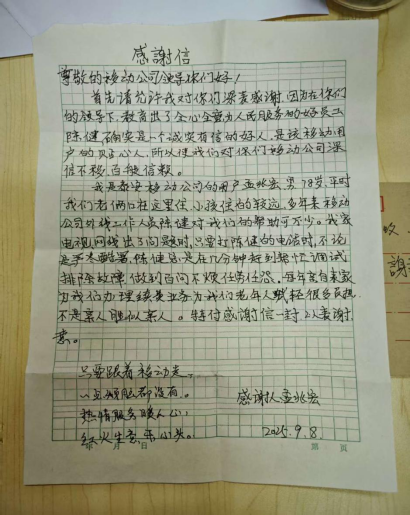 感謝信
尊敬的移动公司领导你们好！
首先请允许我对你们深表感谢，因为在你们
的领导下，教育出了全心全意为人民服务的好员工
陈健，确实是一个诚实有信的好人，是该移动用
户的贴心人，所以使我们对你们移动公司深
信不移，百般信赖。
我是泰安移动公司的用户孟兆宏，男78岁，平时
我们老俩口在这里住，小孩住的较远，多年来移动
公司外线工作人员陈健对我们的帮助可不少。我家
电视、网线出了问题时，只要打陈健的电话时，不论
是寒冬酷暑，陈健总是在几分钟赶到帮忙调试
排除故障，做到百问不烦任劳任怨。每年亲自来家
为我们办理续费业务为我们老年人减轻很多负担
不是亲人胜似亲人。特付感谢信一封，以表谢
意。
只要跟着移动走，
一点烦脑都没有。
热情服务暖人心，
红火生意乐心头。
感谢人孟兆宏
2025.9.8.
年 月 日
第 页
謝